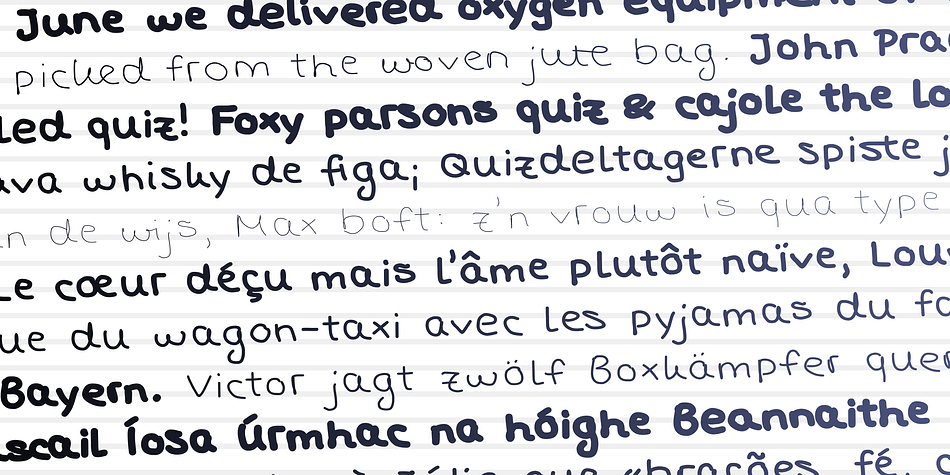 June we delivered oxygen equipment
picked from the woven jute bag. John
quiz! Foxy parsons quiz & cajole the
whisky de figa; Quizdeltagerne spiste
de wijs, Max boft: z'n vrouw is qua type
Le cœur déçu mais l'âme plutôt naïve,
du wagon-taxi avec les pyjamas du
Bayern. Victor jagt zwölf Boxkämpfer
Íosa Úrmhac na hóighe Beannaithe
que «brações, fé,